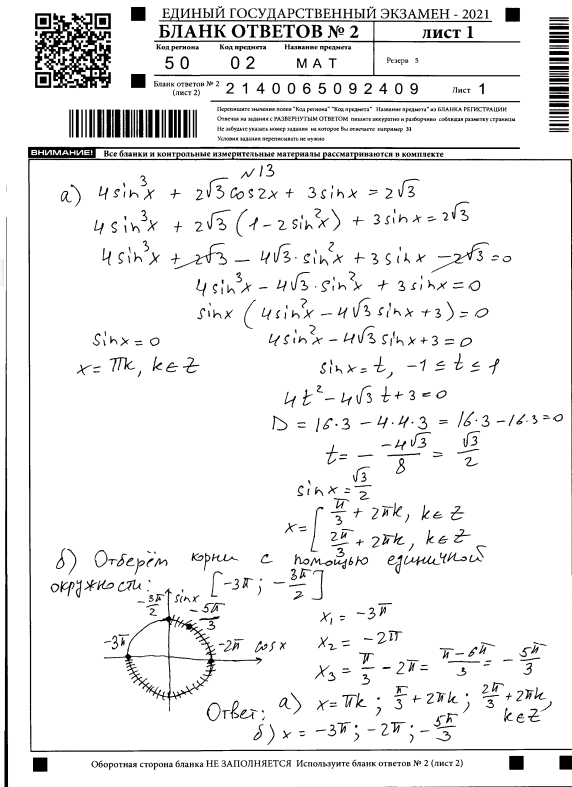 ЕДИНЫЙ ГОСУДАРСТВЕННЫЙ ЭКЗАМЕН - 2021
БЛАНК ОТВЕТОВ № 2 лист 1
Код региона Код предмета Название предмета
50 02 МАТ Резерв 5
Бланк ответов № 2 (лист 2) 2140065092409 Лист 1
Перепишите значения полей "Код региона" "Код предмета" "Название предмета" из БЛАНКА РЕГИСТРАЦИИ
Отвечая на задания с РАЗВЕРНУТЫМ ОТВЕТОМ пишите аккуратно и разборчиво соблюдая разметку страницы
Не забудьте указать номер задания на которое Вы отвечаете например 31
Условия задания переписывать не нужно
ВНИМАНИЕ! Все бланки и контрольные измерительные материалы рассматриваются в комплекте
№13
а) 4sin³x + 2√3 cos2x + 3sinx = 2√3
4sin³x + 2√3 (1-2sin²x) + 3sinx = 2√3
4sin³x + 2√3 - 4√3·sin²x + 3sinx - 2√3 = 0
4sin³x - 4√3·sin²x + 3sinx = 0
sinx (4sin²x - 4√3 sinx + 3) = 0
sinx = 0 4sin²x - 4√3 sinx + 3 = 0
x = πk, k∈Z sinx = t, -1 ≤ t ≤ 1
4t² - 4√3 t + 3 = 0
D = 16·3 - 4·4·3 = 16·3 - 16·3 = 0
t = - -4√3/8 = √3/2
sinx = √3/2
x = [ π/3 + 2πk, k∈Z
2π/3 + 2πk, k∈Z
б) Отберём корни с помощью единичной
окружности: [-3π; -3π/2]
-3π/2 sinx -5π/3
x₁ = -3π
-3π -2π cosx x₂ = -2π
x₃ = π/3 - 2π = π-6π/3 = -5π/3
Ответ: а) x = πk; π/3 + 2πk; 2π/3 + 2πk, k∈Z
б) x = -3π; -2π; -5π/3
Оборотная сторона бланка НЕ ЗАПОЛНЯЕТСЯ Используйте бланк ответов № 2 (лист 2)